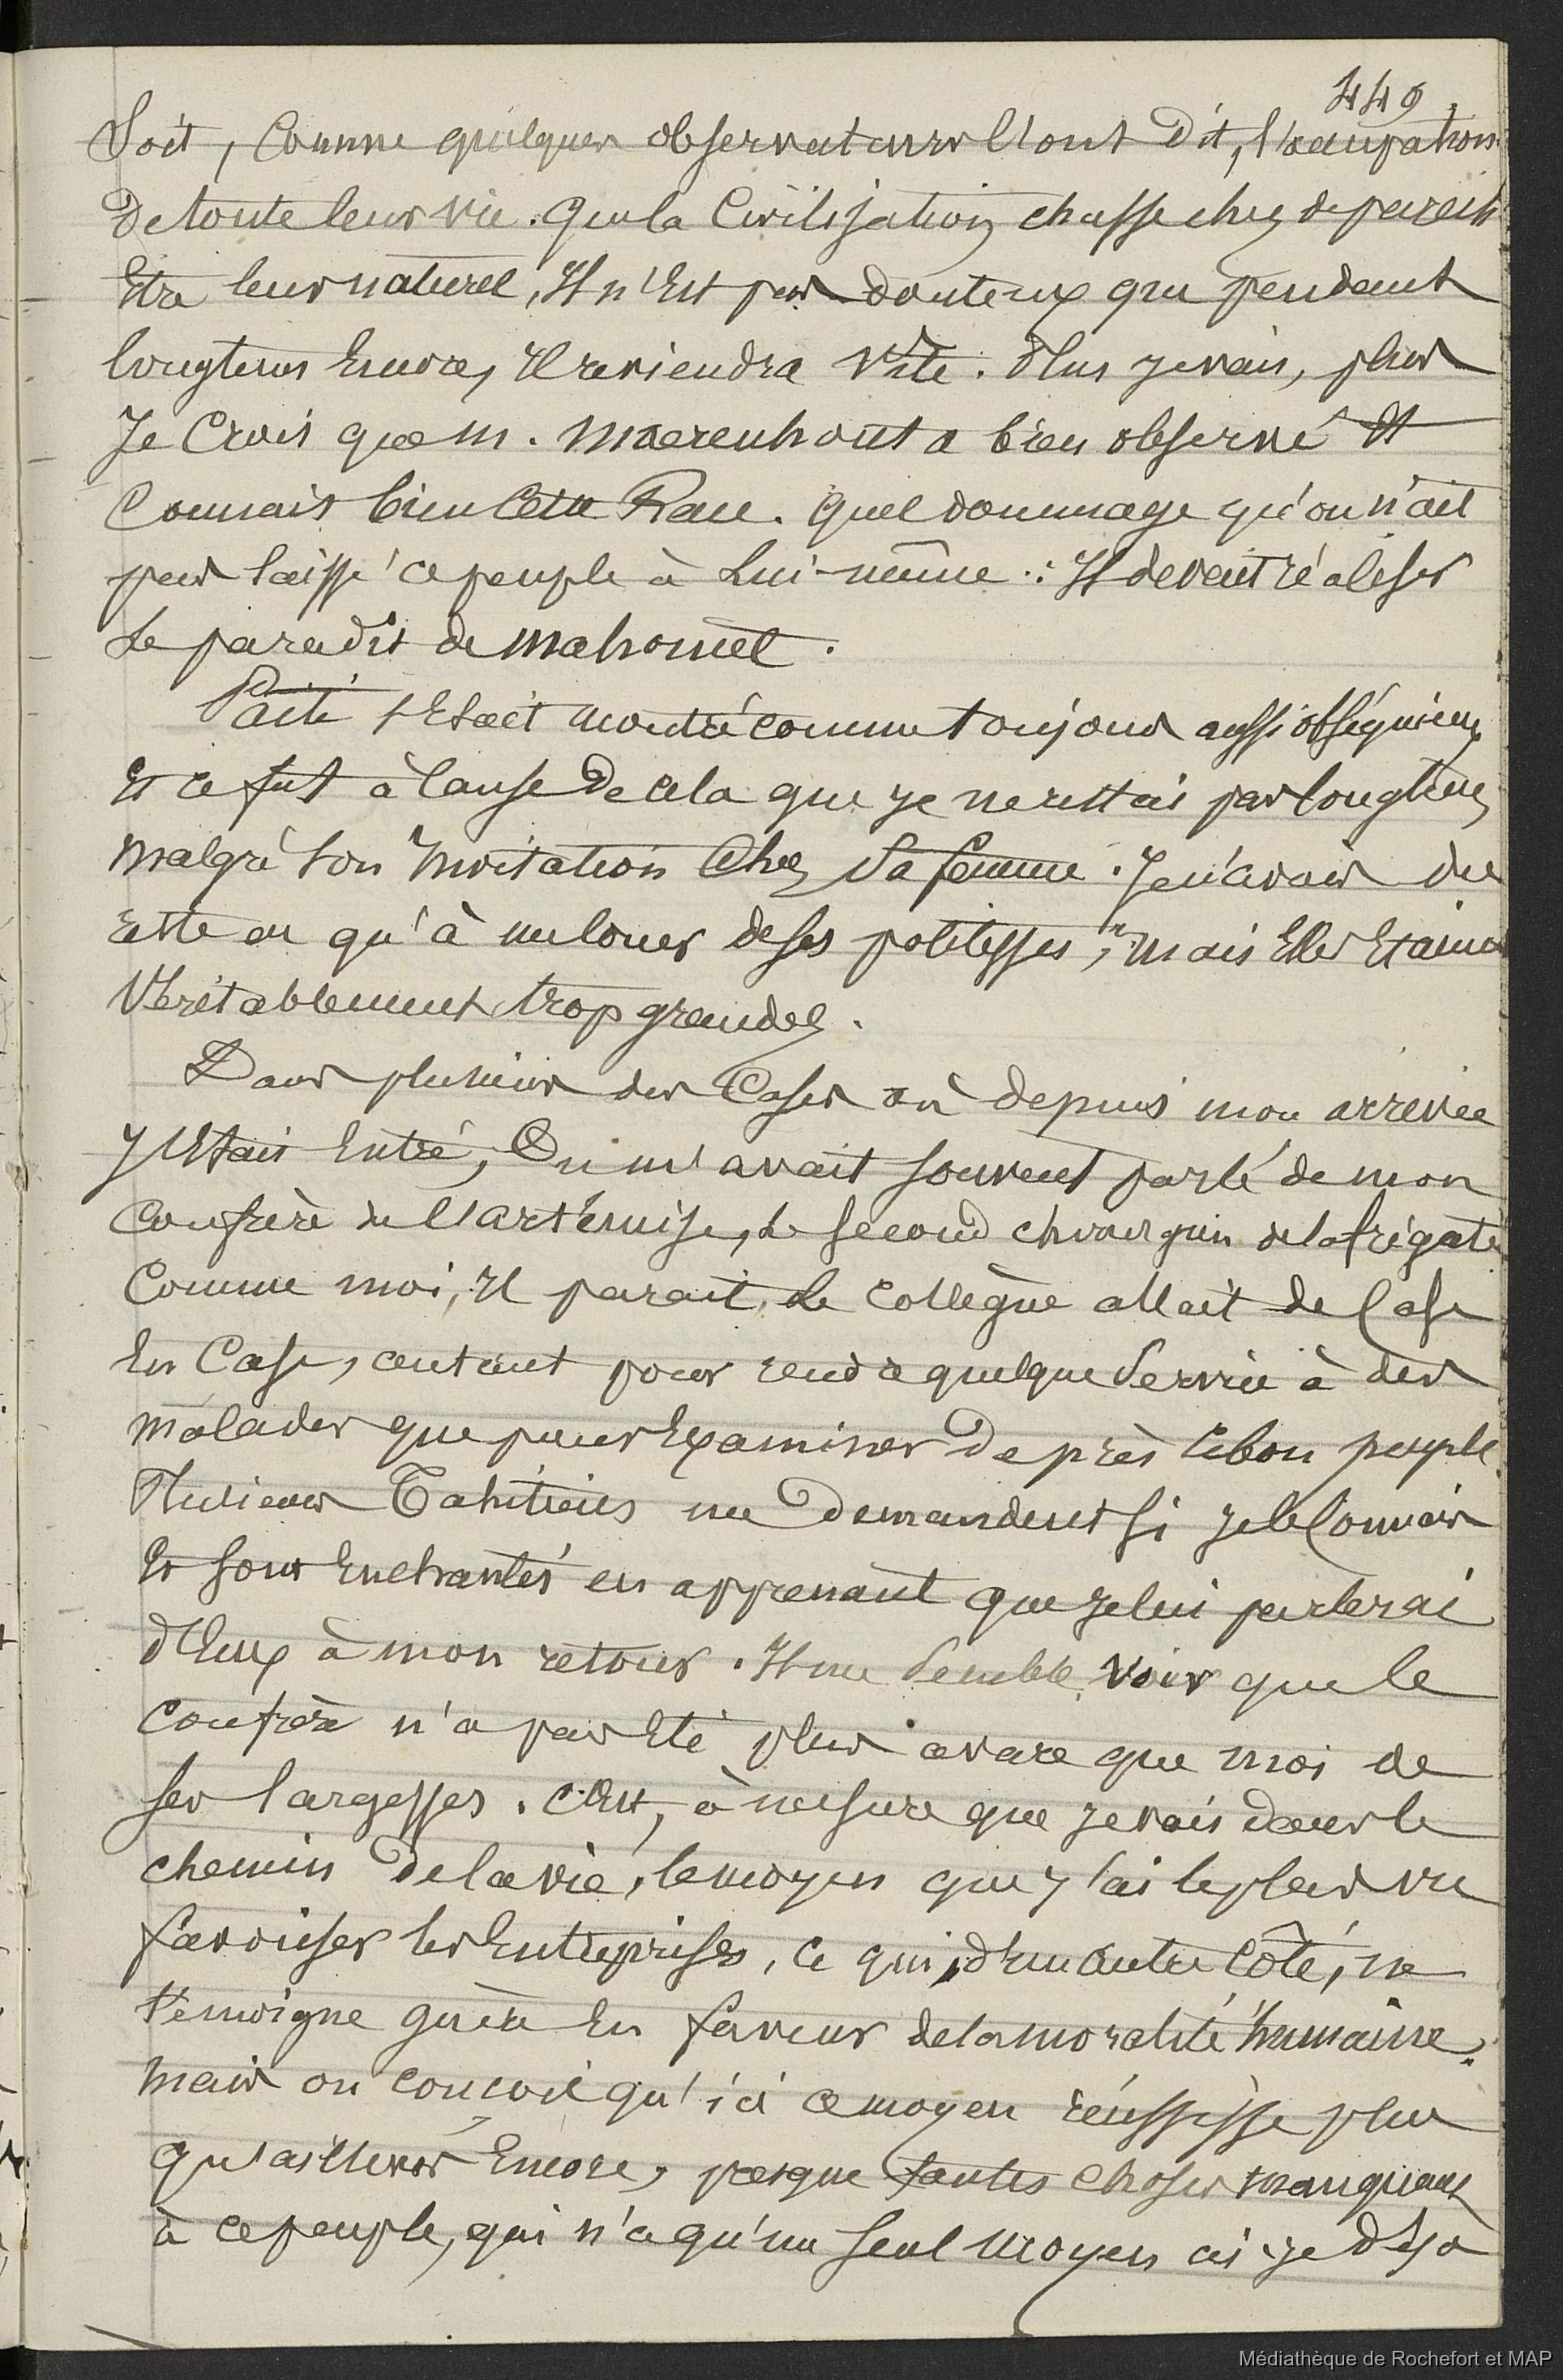 449.
Soit, Comme quelques observateurs l'ont dit, l'occupation
De toute leur vie. Que la Civilisation chasse chez de pareils
Etre leur naturel, Il n'Est pas douteux que pendant
longtems Encore, Il reviendra vite. Plus je vais, plus
Je Crois que M. Moerenhout a bien observé Et
Connais bien Cette Race. Quel dommage qu'on n'ait
pas laissé ce peuple à Lui-même : Il devait réaliser
Le paradis de Mahomet.
Païti s'Etait montré comme toujours aussi obséquieux
Et ce fut à Cause De Cela que je ne restais pas longtems
Malgré son Invitation Chez Sa femme. Je n'avais du
reste eu qu'à me louer de ses politesses, mais Elles Etaient
Véritablement trop grandes.
Dans plusieurs des Cases où depuis mon arrivée
J'Etais Entré, On m'avait souvent parlé de mon
Confrère de l'artémise, Le second chirurgien de la frégate
Comme moi, Il parait, Le Collègue allait de Case
En Case, autant pour rendre quelque Service à des
malades que pour Examiner De près Ce bon peuple.
Plusieurs Tahitiens me Demandent si je le Connais
Et sont Enchantés en apprenant que je lui parlerai
d'Eux à mon retour. Il me Semble voir que le
Confrère n'a pas Eté plus avare que moi de
ses largesses. C'Est, à mesure que je vais dans le
chemin De la vie, le moyen que j'ai le plus vu
favoriser les Entreprises, Ce qui, d'un autre Côté, ne
témoigne guère En faveur de la moralité humaine.
Mais on conçoit qu'ici ce moyen réussisse plus
qu'ailleurs Encore, puisque toutes choses manquent
à ce peuple, qui n'a qu'un seul moyen ai-je Déjà